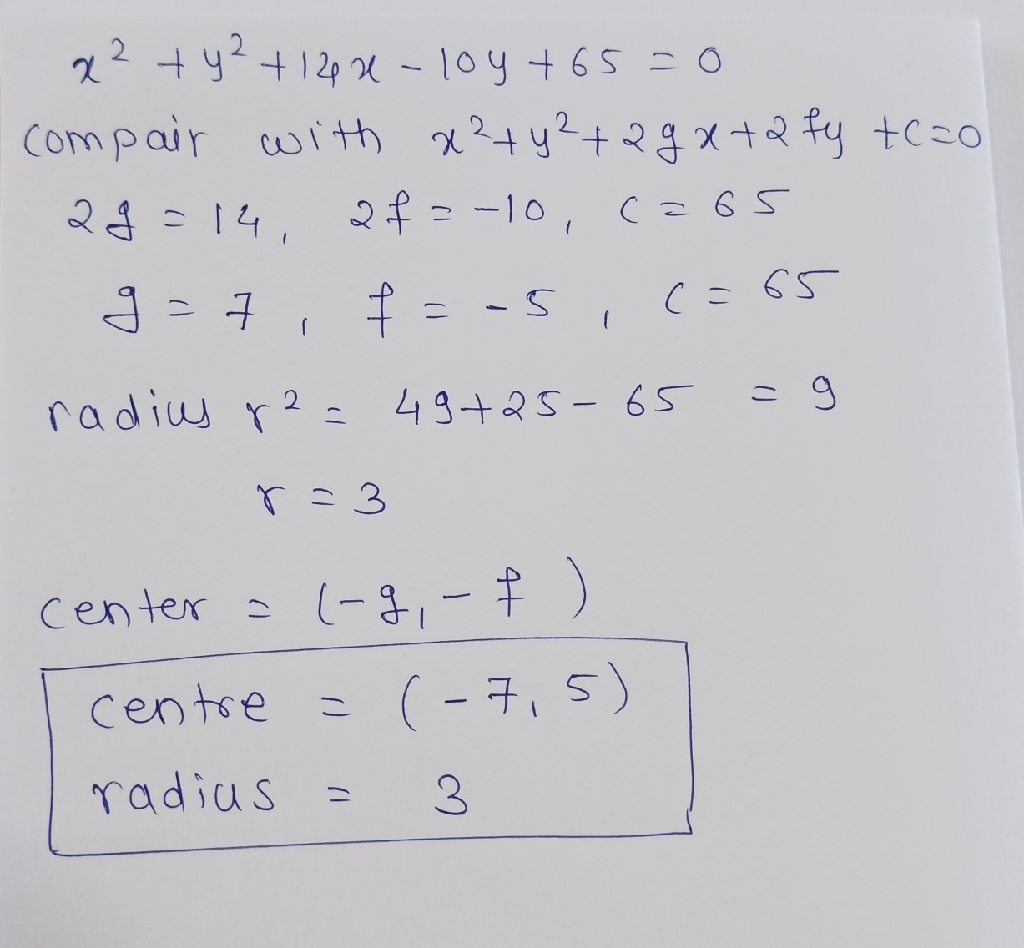 x² + y² + 14x - 10y + 65 = 0
compair with x² + y² + 2gx + 2fy + c = 0
2g = 14, 2f = -10, c = 65
g = 7, f = -5, c = 65
radius r² = 49 + 25 - 65 = 9
r = 3
center = (-g, -f)
centre = (-7, 5)
radius = 3